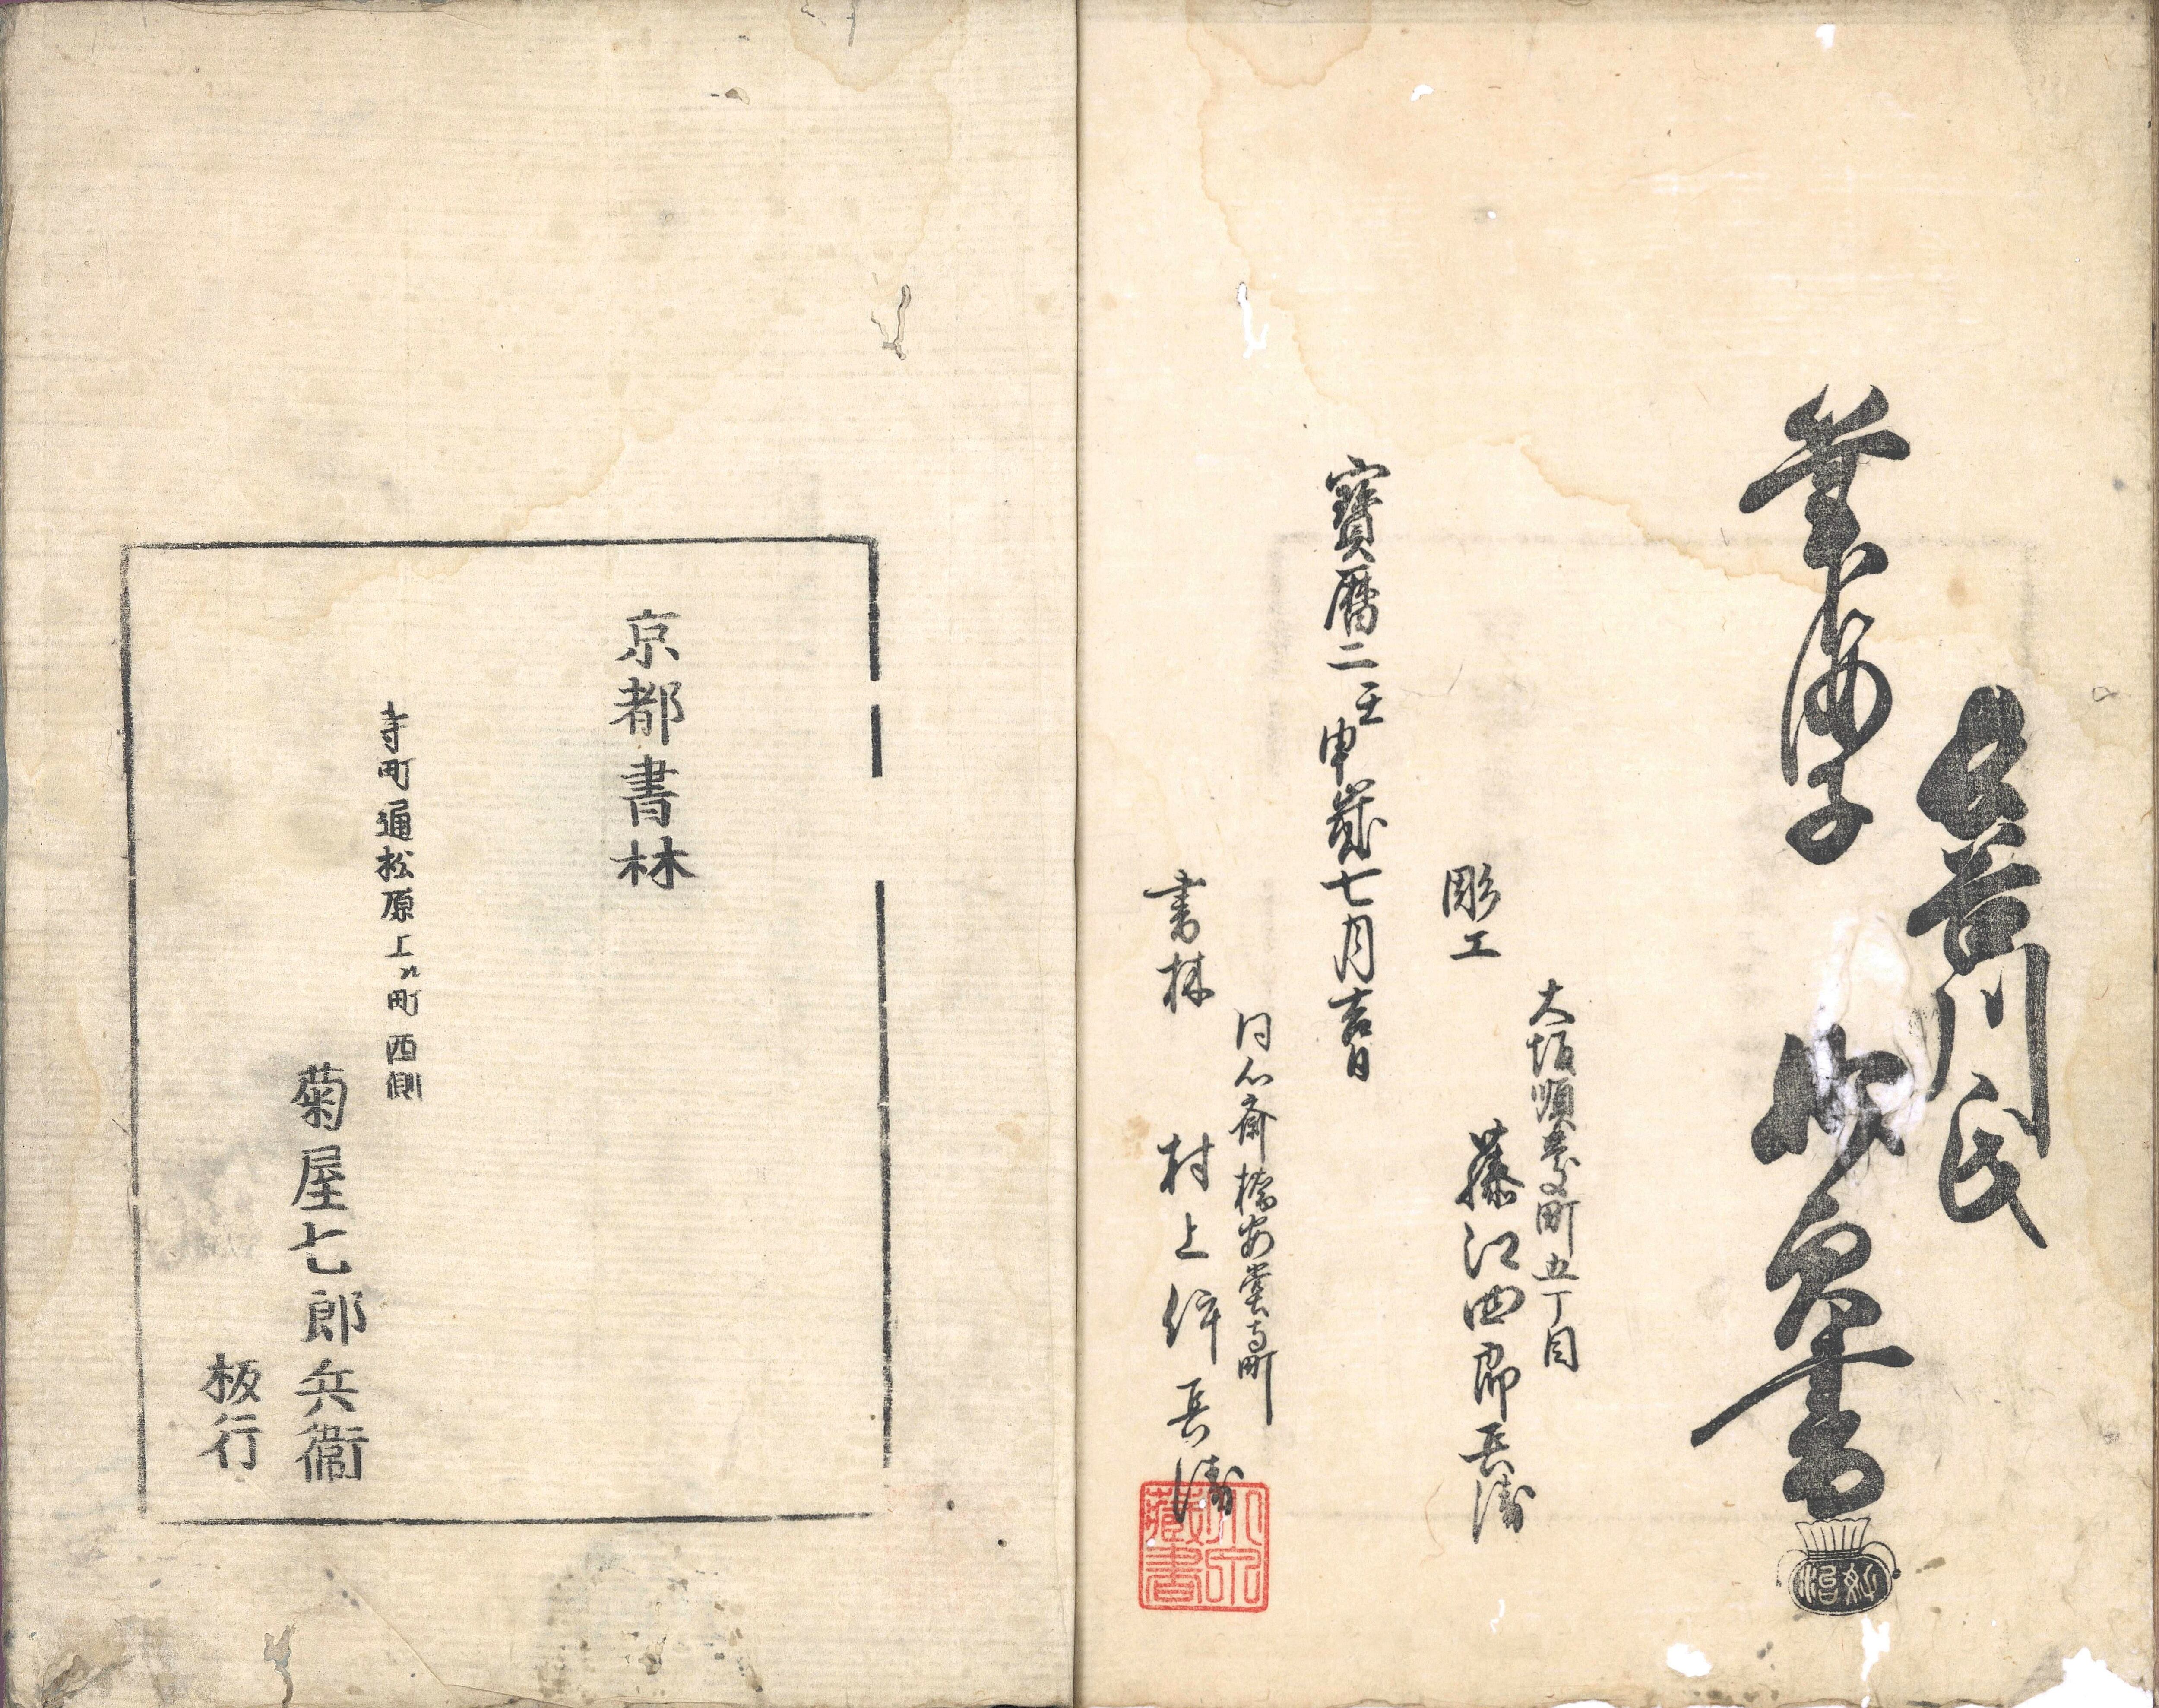 長谷川氏
筆海子　妙貞書
大坂順慶町五丁目
彫工　藤江四郎兵衛
寳暦二壬申歳七月吉日
同心斎橋安堂寺町
書林　村上伊兵衛
京都書林
寺町通松原上ル町西側
菊屋七郎兵衛
板行